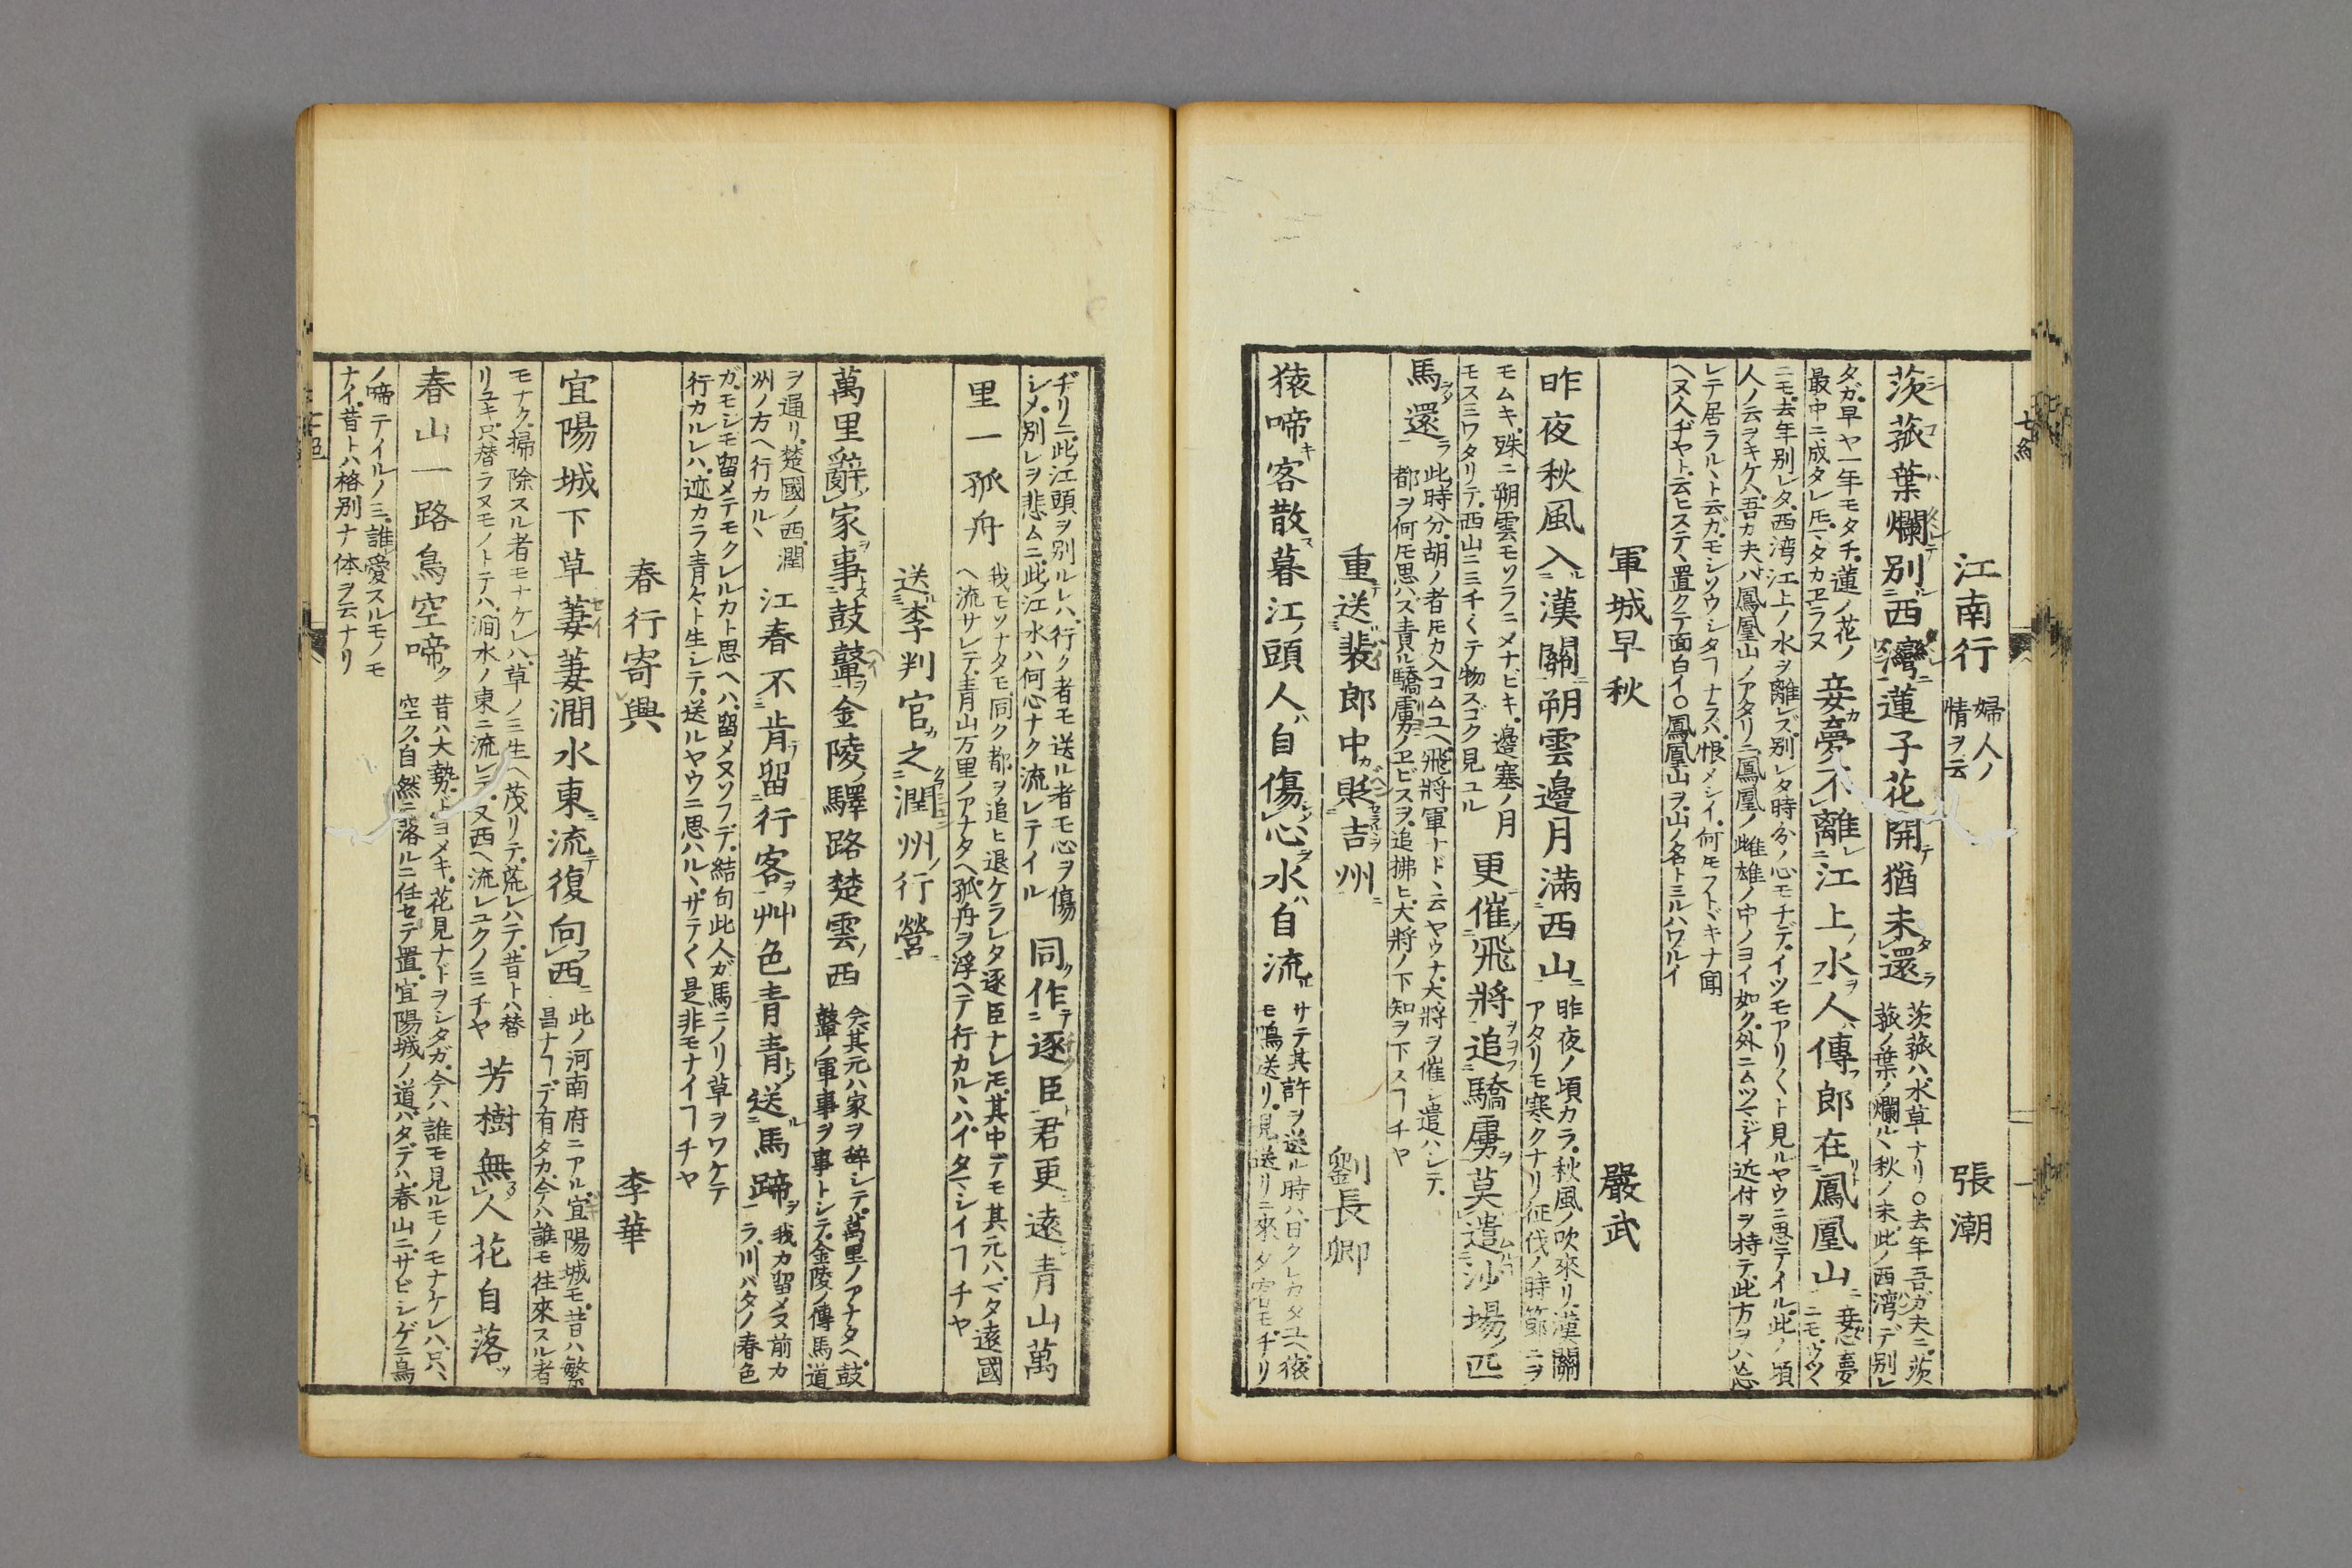 七絶
江南行 婦人ノ情ヲ云 張潮
茨菰葉爛別西灣蓮子花開猶未還 茨菰ハ水草ナリ〇去年吾ガ夫ニ茨菰ノ葉ノ爛ル丶秋ノ末此ノ西湾デ別レ
タガ早ヤ一年モタチ蓮ノ花ノ最中ニ成タレ𪜈マダカヱラヌ 妾夢不離江上水人傳郎在鳳凰山 妾ハ夢ニモウツ〱
ニモ去年別レタ西湾江上ノ水ヲ離レズ別レタ時分ノ心モチデイツモアリ〱ト見ルヤウニ思テイル此ノ頃
人ノ云ヲキケハ吾カ夫ハ鳳凰山ノアタリニ鳳凰ノ雌雄ノ中ノヨイ如ク外ニムツマジイ近付ヲ持テ此方ヲハ忘
レテ居ラル丶ト云ガモシソウシタヿナラバ恨メシイ何𪜈フトヾキナ聞
ヘヌ人ヂヤト云ヒステ丶置クテ面白イ〇鳳凰山ヲ山ノ名トミルハワルイ
軍城早秋 嚴武
昨夜秋風入漢關朔雲邊月滿西山 昨夜ノ頃カラ秋風ノ吹來リ漢關アタリモ寒クナリ征伐ノ時節ニヲ
モムキ殊ニ朔雲モソラニメナビキ邊塞ノ月モスミワタリテ西山ニ三千〱テ物スゴク見ユル 更催飛將追驕虜莫遣沙場匹
馬還 此時分胡ノ者𪜈カ入コムユヘ飛將軍ナド丶云ヤウナ大將ヲ催シ遣ハシテ都ヲ何𪜈思ハズ責ル驕虜ノヱビスヲ追拂ヒ大將ノ下知ヲ下スヿチヤ
重送裴郎中貶吉州 劉長卿
猿啼客散暮江頭人自傷心水自流 サテ其許ヲ送ル時ハ日クレカタユヘ猿モ鳴送リ見送リニ來タ客モチリ
ヂリニ此江頭ヲ別ルレハ行ク者モ送ル者モ心ヲ傷シメ別レヲ悲ムニ此江水ハ何心ナク流レテイル 同作逐臣君更遠青山萬
里一孤舟 我モソナタモ同ク都ヲ追ヒ退ケラレタ逐臣ナレ𪜈其中デモ其元ハマタ遠國ヘ流サレテ青山万里ノアナタヘ孤舟ヲ浮ヘテ行カル丶ハイタマシイヿチヤ
送李判官之潤州行營
萬里辭家事鼓鼙金陵驛路楚雲西 今其元ハ家ヲ辞シテ萬里ノアナタヘ鼓鼙ノ軍事ヲ事トシテ金陵ノ傳馬道
ヲ通リ楚國ノ西潤州ノ方ヘ行カル丶 江春不肯留行客艸色青青送馬蹄 我カ留メヌ前カラ川バタノ春色
ガモシモ留メテモクレルカト思ヘハ留メヌソフデ結句此人ガ馬ニノリ草ヲワケテ
行カルレハ迹カラ青々ト生シテ送ルヤウニ思ハル丶サテ〱是非モナイヿチヤ
春行寄興 李華
宜陽城下草萋萋澗水東流復向西 此ノ河南府ニアル宜陽城モ昔ハ繁昌ナヿデ有タカ今ハ誰モ往來スル者
モナク掃除スル者モナケレハ草ノミ生ヘ茂リテ荒レハテ昔トハ替リユキ只替ラヌモノトテハ澗水ノ東ニ流レテ又西ヘ流レユクノミチヤ 芳樹無人花自落
春山一路鳥空啼 昔ハ大勢ドヨメキ花見ナドヲシタガ今ハ誰モ見ルモノモナケレハ只空ク自然ニ落ルニ任セテ置宜陽城ノ道バタデハ春山ニサビシゲニ鳥
ノ啼テイルノミ誰愛スルモノモ
ナイ昔トハ格別ナ体ヲ云ナリ